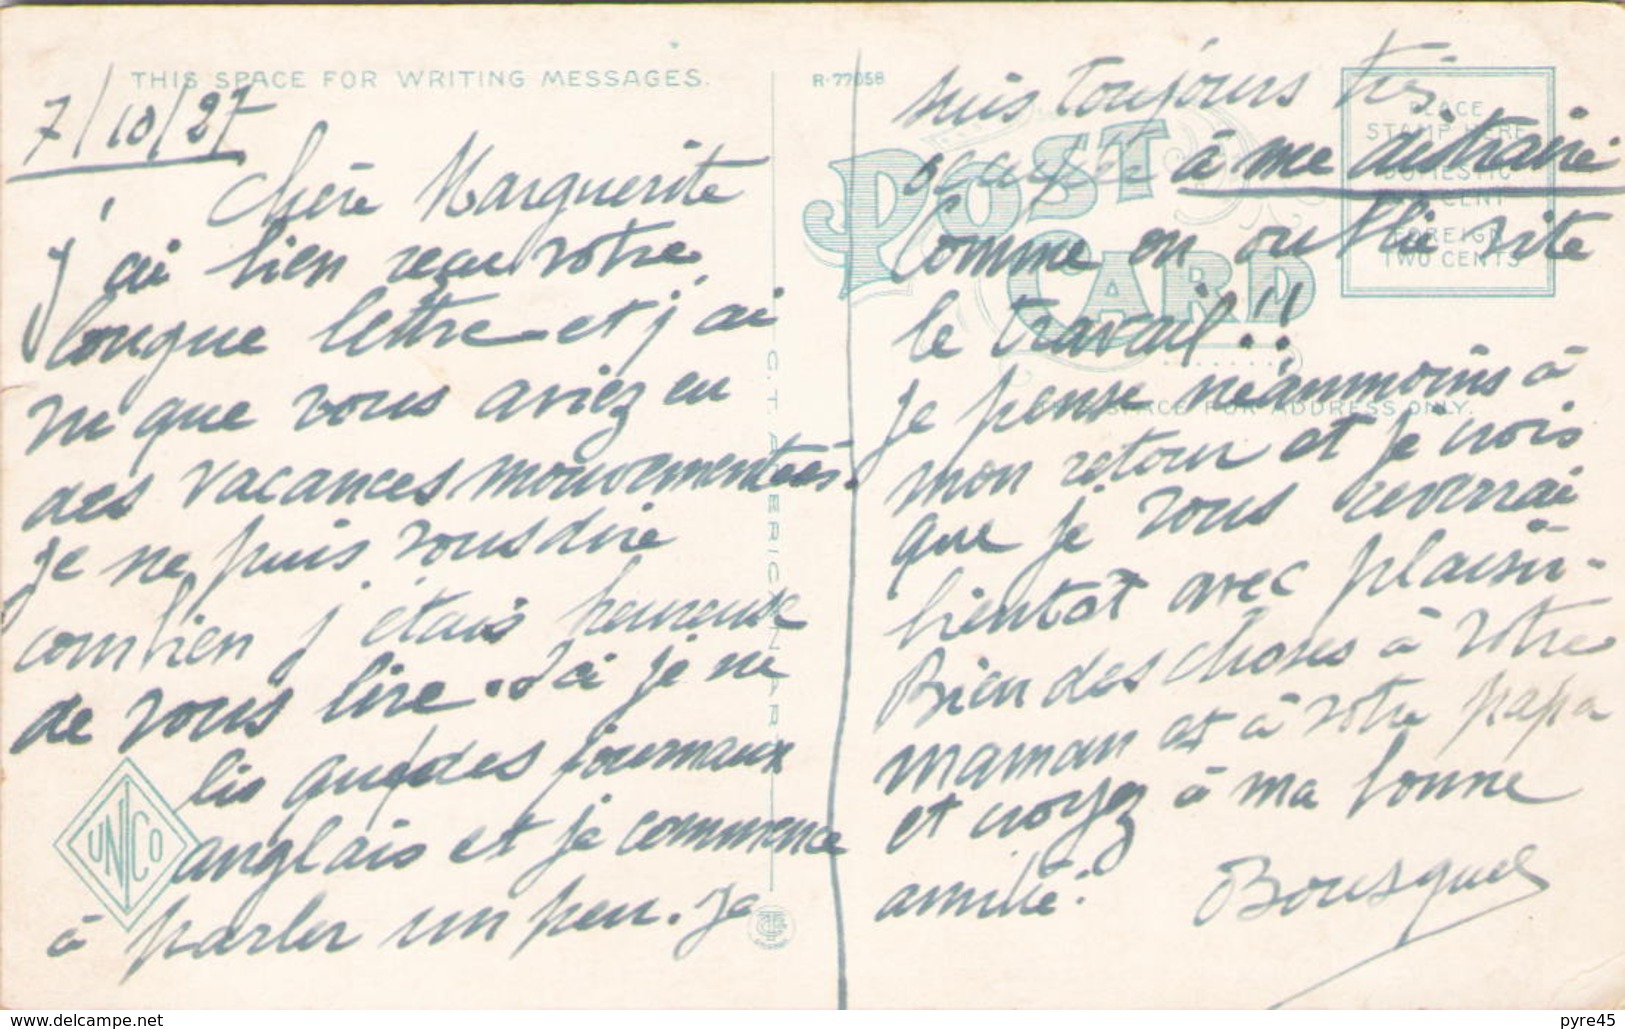 THIS SPACE FOR WRITING MESSAGES.
7/10/27
Chère Marguerite
J'ai bien reçu votre
longue lettre et j'ai
vu que vous aviez eu
des vacances mouvementées.
Je ne puis vous dire
combien j'étais heureuse
de vous lire. Ici je ne
lis que des journaux
anglais et je commence
à parler un peu. Je
UNICO
C.T. AMERICAN ART
R-77058
POST CARD
PLACE
STAMP HERE
DOMESTIC
ONE CENT
FOREIGN
TWO CENTS
THIS SPACE FOR ADDRESS ONLY.
suis toujours très
occupée à me distraire
Comme on oublie vite
le travail!!
Je pense néanmoins à
mon retour et je crois
que je vous reverrai
bientôt avec plaisir.
Bien des choses à votre
maman et à votre papa
et croyez à ma bonne
amitié.
Bousquet
www.delcampe.net
pyre45